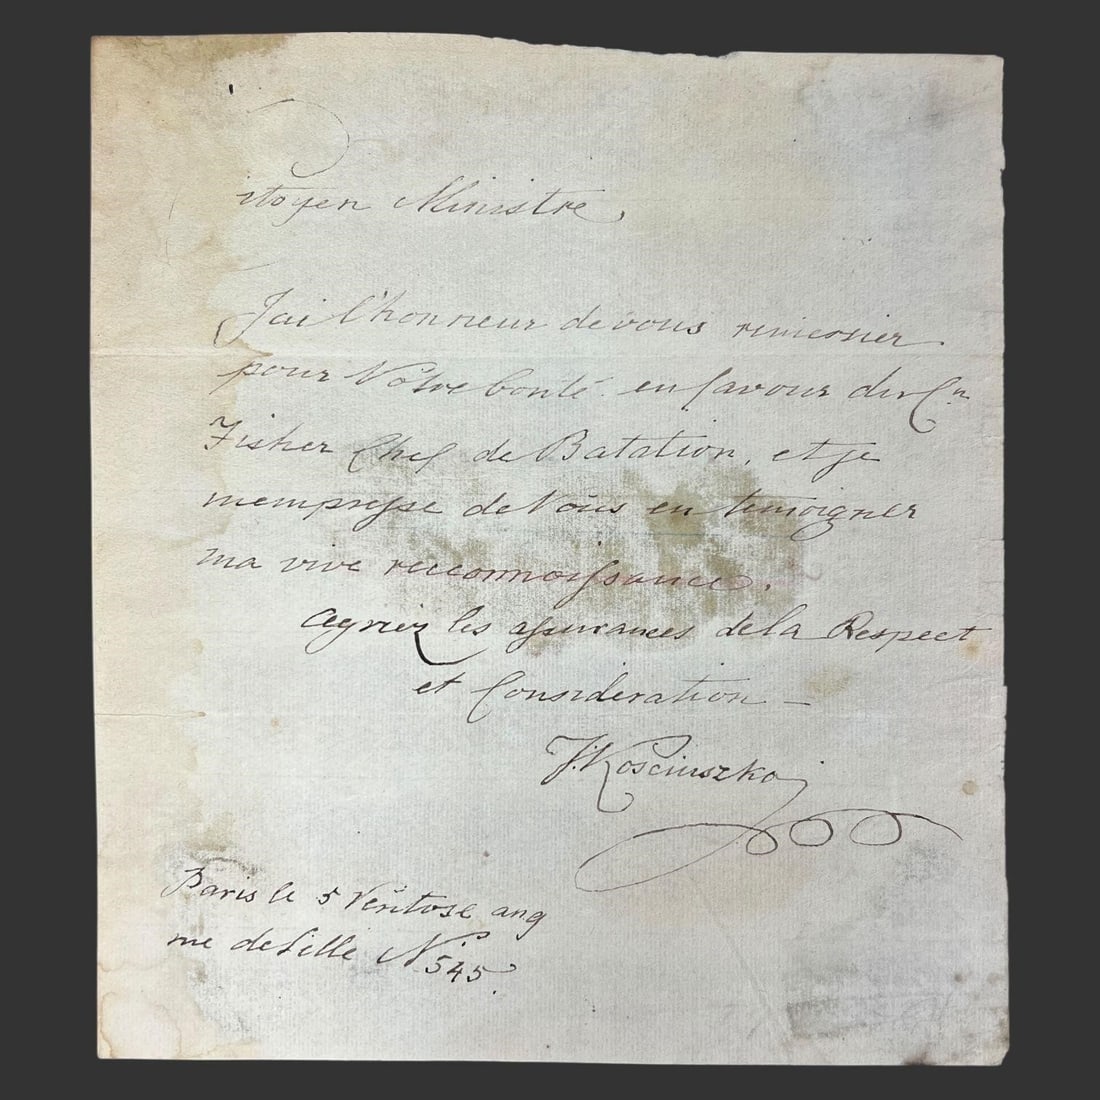 Citoyen Ministre,
J'ai l'honneur de vous remercier
pour Votre bonté en faveur du Cn
Fisher Chef de Batation, et je
mempresse de Vous en temoigner
ma vive reconnoissance.
Agriez les assurances de la Respect
et Consideration —
T. Kosciuszko
Paris le 5 Ventose an 9
rue de Lille No 545.